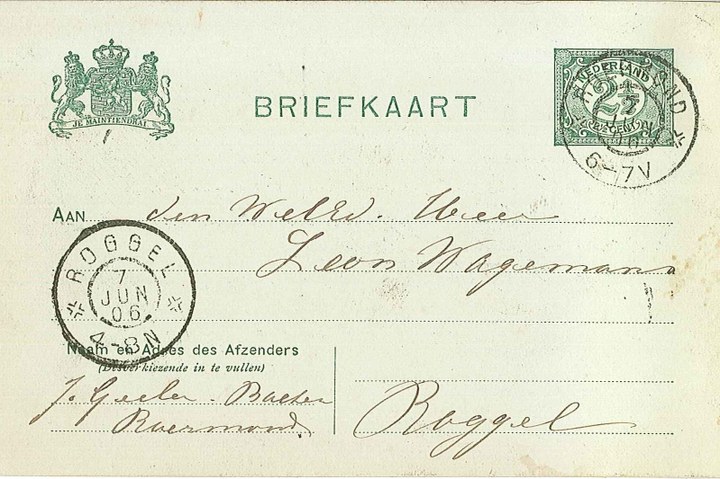 JE MAINTIENDRAI
BRIEFKAART
NEDERLAND
2½
CENT
6-7V
AAN den WelEd. Heer
Leon Wagemans
ROGGEL
7
JUN
06
4-8N
Naam en Adres des Afzenders
(Desverkiezende in te vullen)
J. Geelen-
Roermond
Roggel